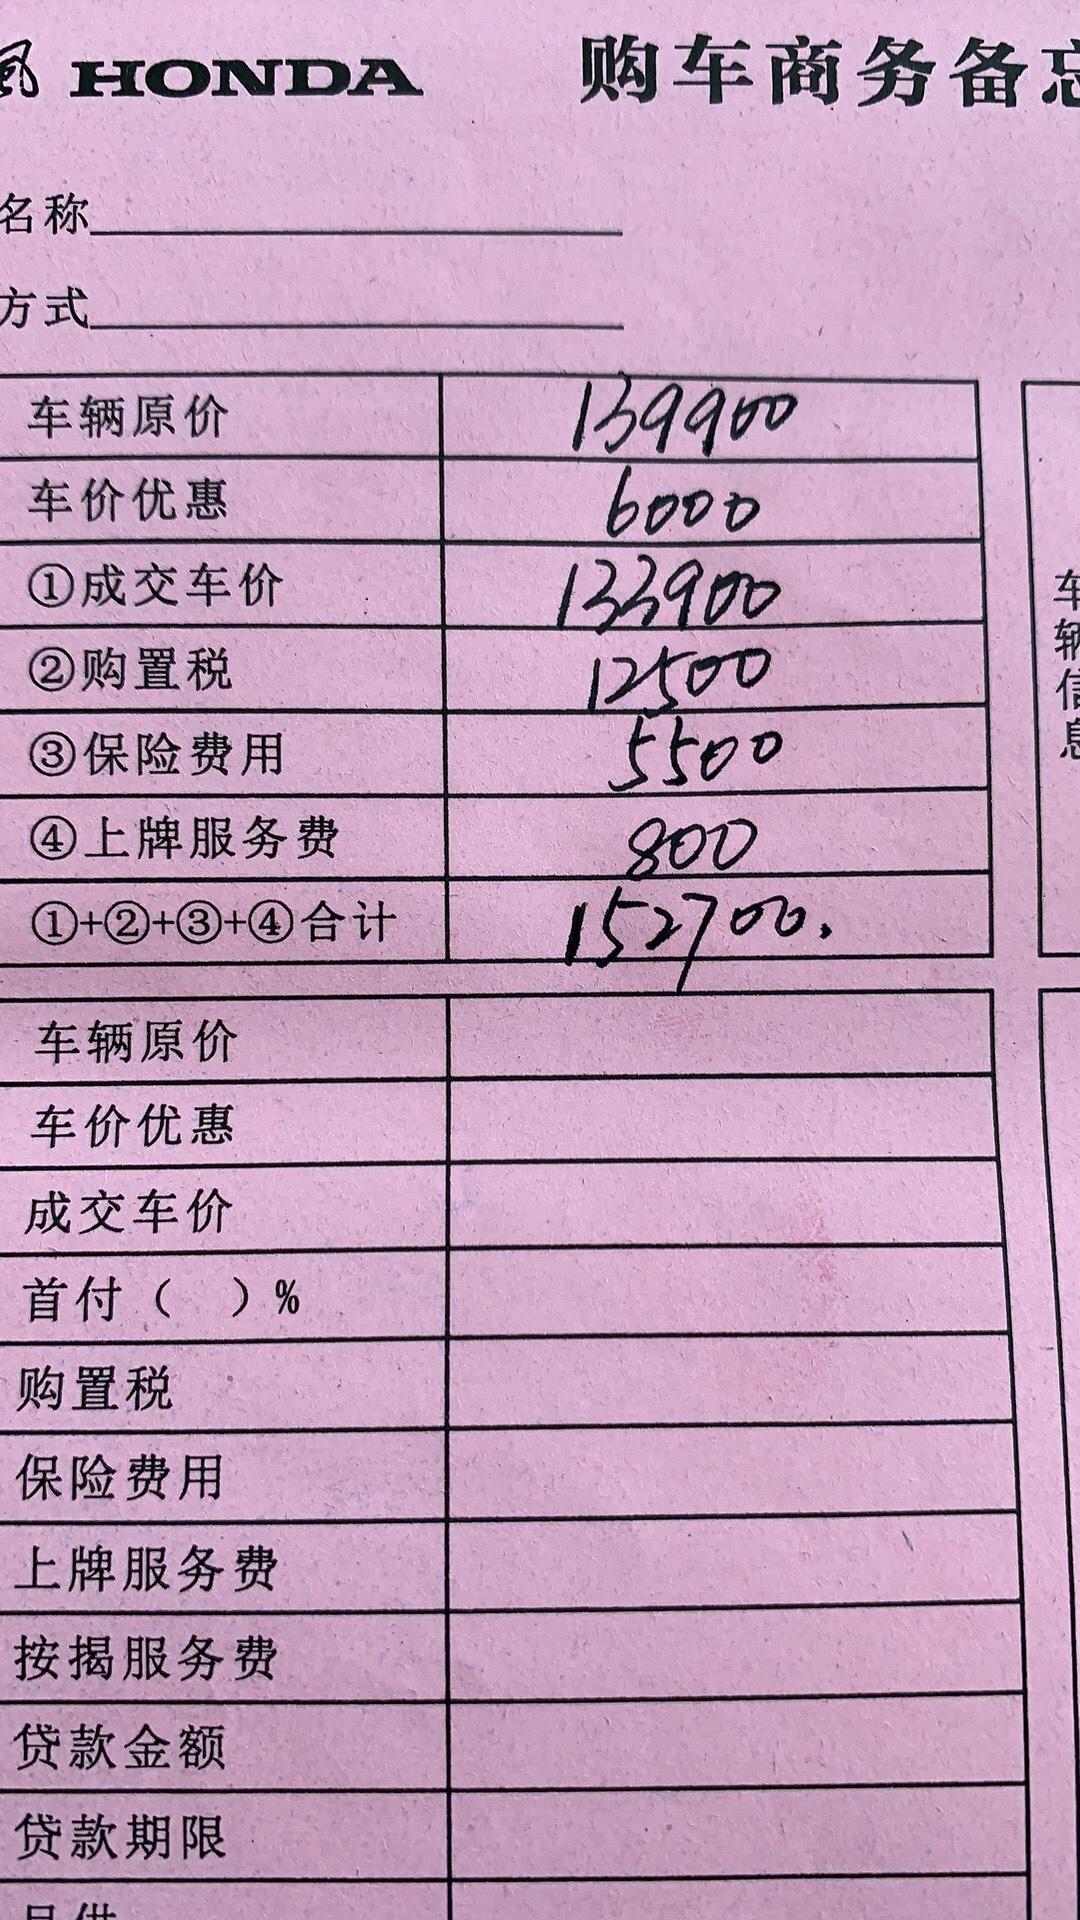 風 HONDA 购车商务备忘
名称
方式
车辆原价 139900
车价优惠 6000
①成交车价 133900
②购置税 12500
③保险费用 5500
④上牌服务费 800
①+②+③+④合计 152700.
车辆信息
车辆原价
车价优惠
成交车价
首付（ ）%
购置税
保险费用
上牌服务费
按揭服务费
贷款金额
贷款期限
月供